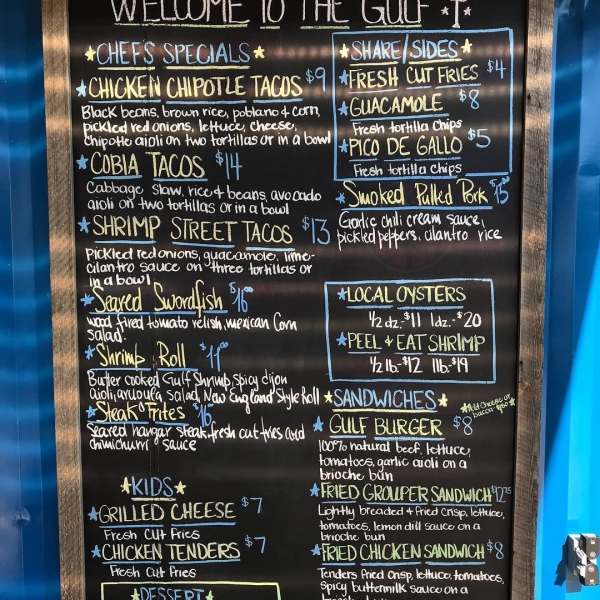 WELCOME TO THE GULF
CHEFS SPECIALS
CHICKEN CHIPOTLE TACOS $9
Black beans, brown rice, poblano & corn,
pickled red onions, lettuce, cheese,
Chipotle aioli on two tortillas or in a bowl
COBIA TACOS $14
Cabbage slaw, rice & beans, avocado
aioli on two tortillas or in a bowl
SHRIMP STREET TACOS $13
Pickled red onions, guacamole, lime-
cilantro sauce on three tortillas or
in a bowl
Seared Swordfish $16
wood fired tomato relish, mexican Corn
salad
Shrimp Roll $11
Butter cooked Gulf Shrimp, Spicy dijon
aioli, arugula salad, New England Style Roll
Steak Frites $16
Seared hangar steak, fresh cut fries and
chimichurri sauce
KIDS
GRILLED CHEESE $7
Fresh Cut Fries
CHICKEN TENDERS $7
Fresh Cut Fries
DESSERT
SHARE/SIDES
FRESH CUT FRIES $4
GUACAMOLE $8
Fresh tortilla Chips
PICO DE GALLO $5
Fresh tortilla chips
Smoked Pulled Pork $15
Garlic chili cream sauce,
pickled peppers, cilantro rice
LOCAL OYSTERS
1/2 dz.-$11 1dz.-$20
PEEL & EAT SHRIMP
1/2 lb-$12 1lb-$19
SANDWICHES
Add Cheese or
bacon
GULF BURGER $8
100% natural beef, lettuce,
tomatoes, garlic aioli on a
brioche bun
FRIED GROUPER SANDWICH
Lightly breaded & fried crisp, lettuce,
tomatoes, lemon dill sauce on a
brioche bun
FRIED CHICKEN SANDWICH $8
Tenders fried crisp, lettuce, tomatoes,
spicy buttermilk sauce on a